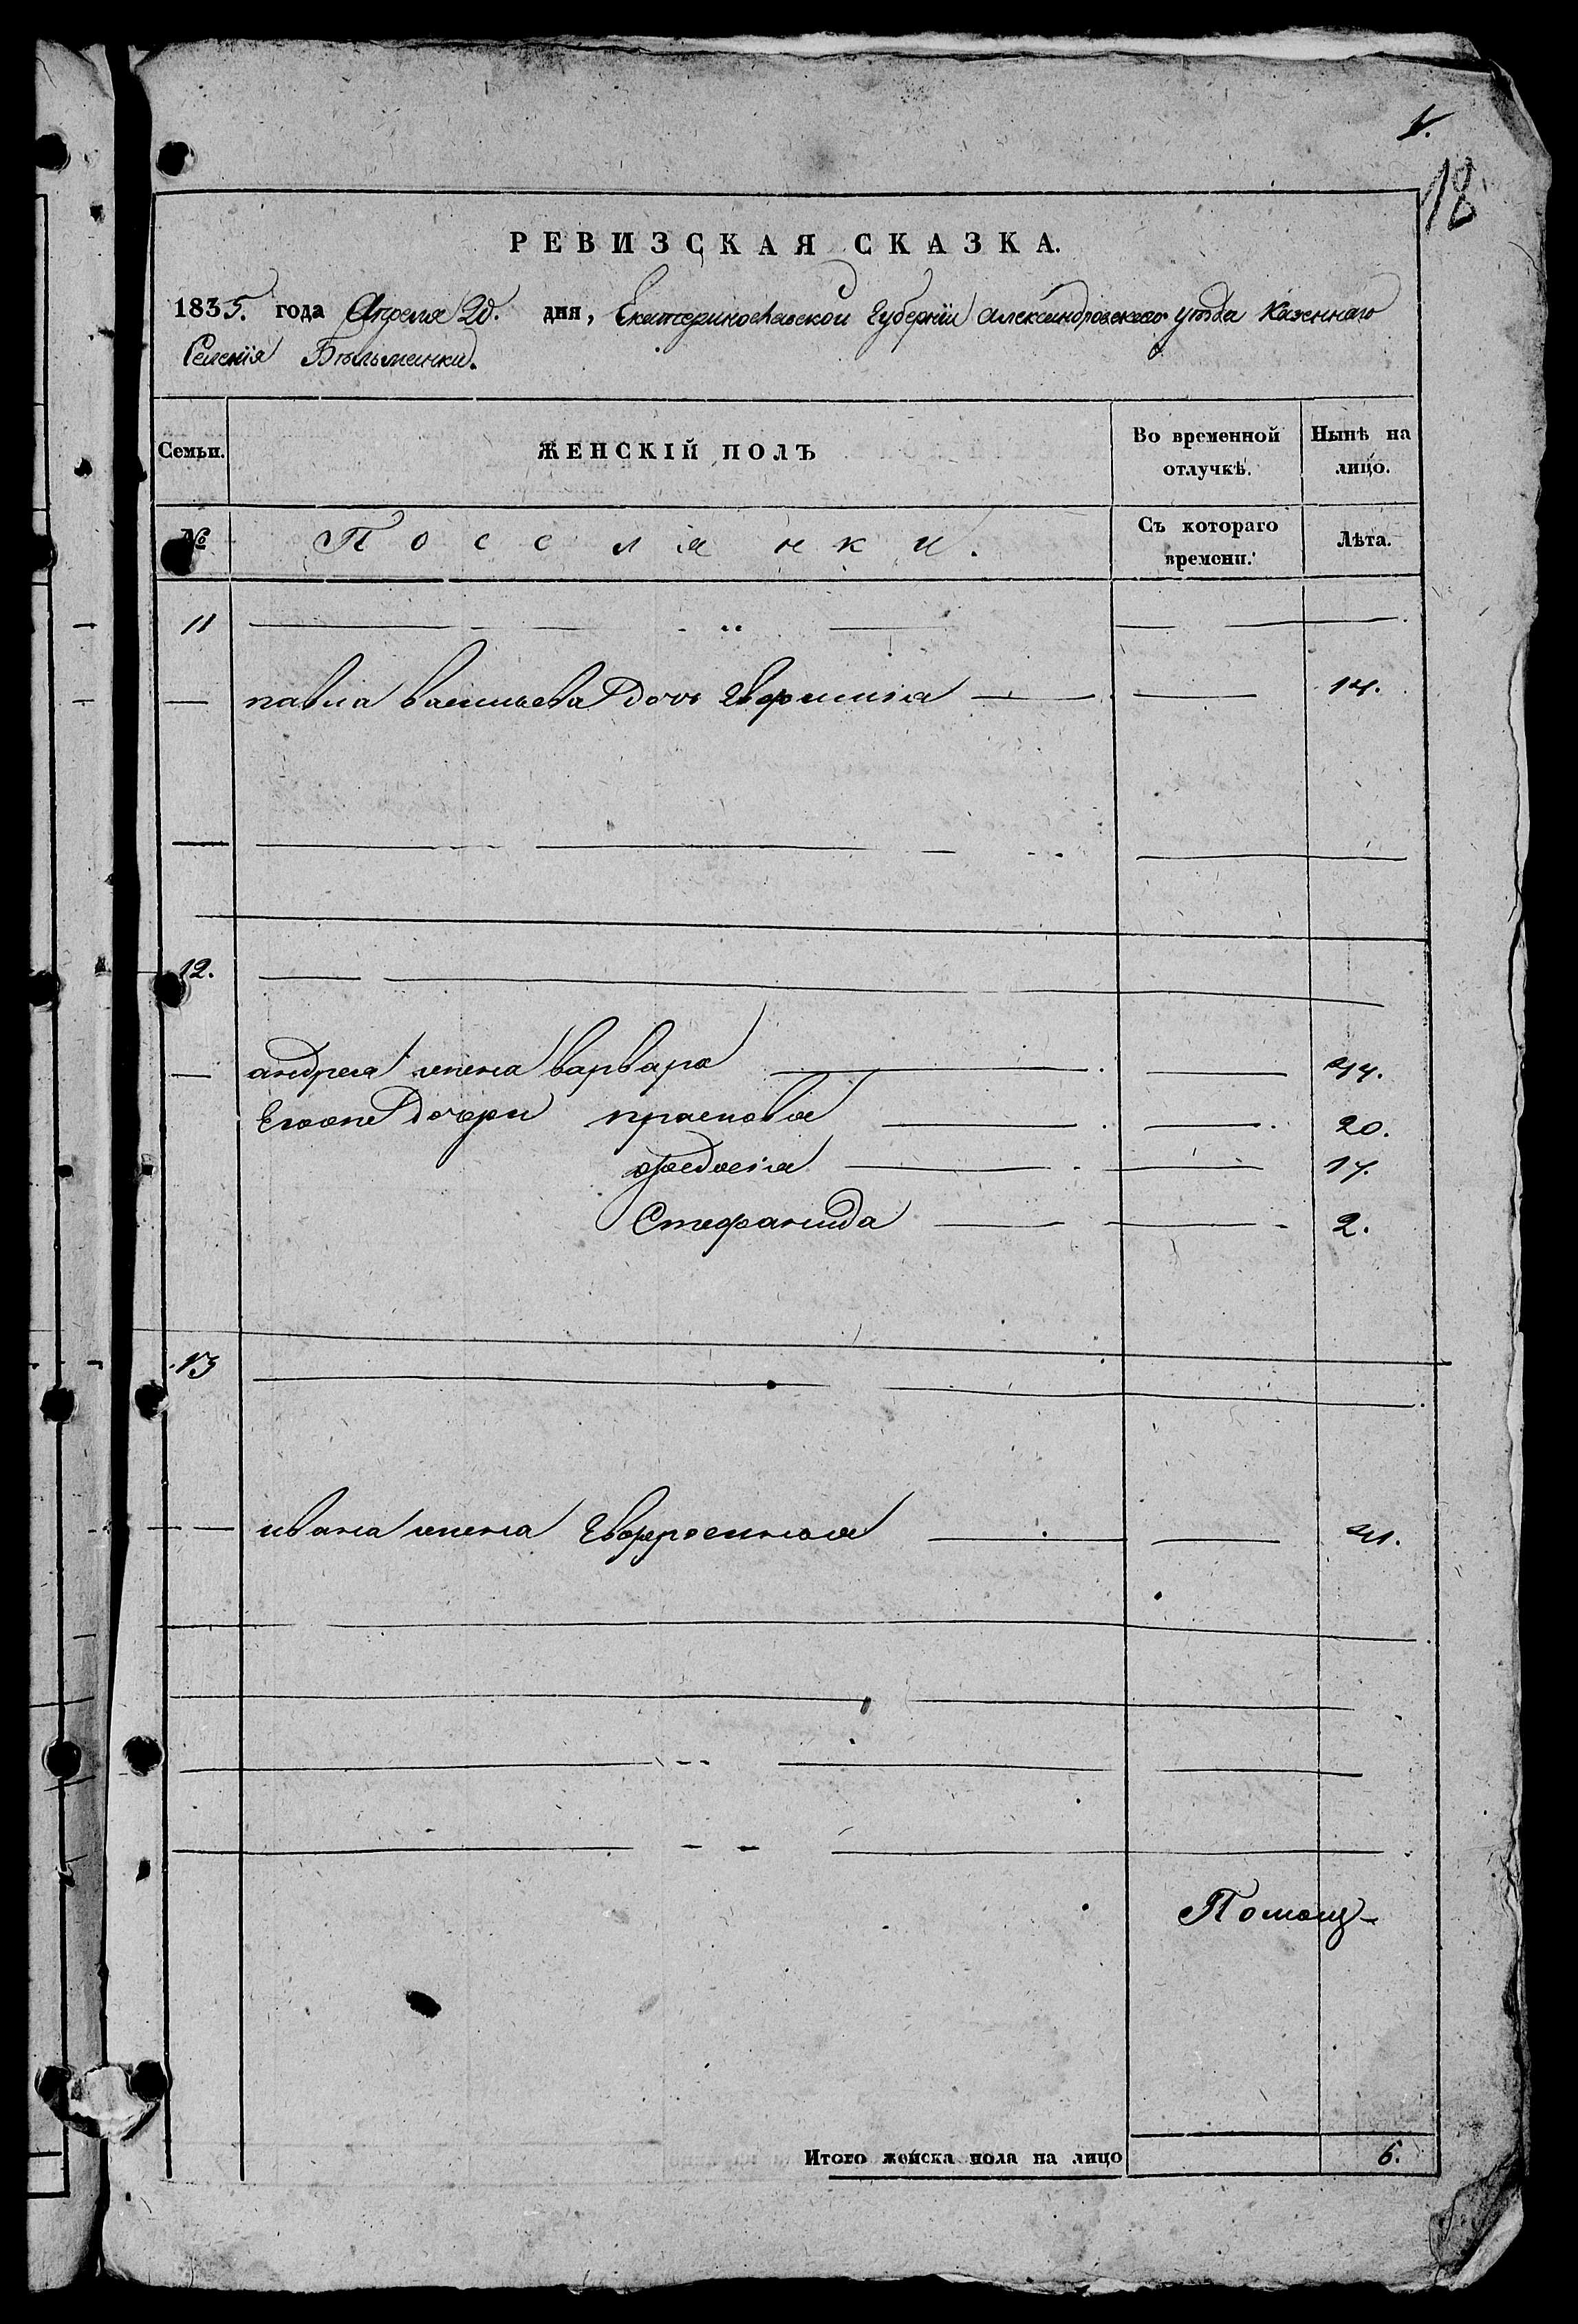 18
РЕВИЗСКАЯ СКАЗКА.
1835. года Апреля 20. дня, Екатеринославской Губерніи Александровского уѣзда Казеннаго
Селенія Бѣльманки.
Семьи. ЖЕНСКІЙ ПОЛЪ Во временной отлучкѣ. Нынѣ на лицо.
№ Посселянки. Съ котораго времени. Лѣта.
11
павла васильева дочь 14.
12.
андрея жена варвара 44.
Егоже дочери прасковя 20.
федосия 17.
Стефанида 2.
13
ивана жена Евфросиния 41.
Помощ-
Итого женска пола на лицо 6.